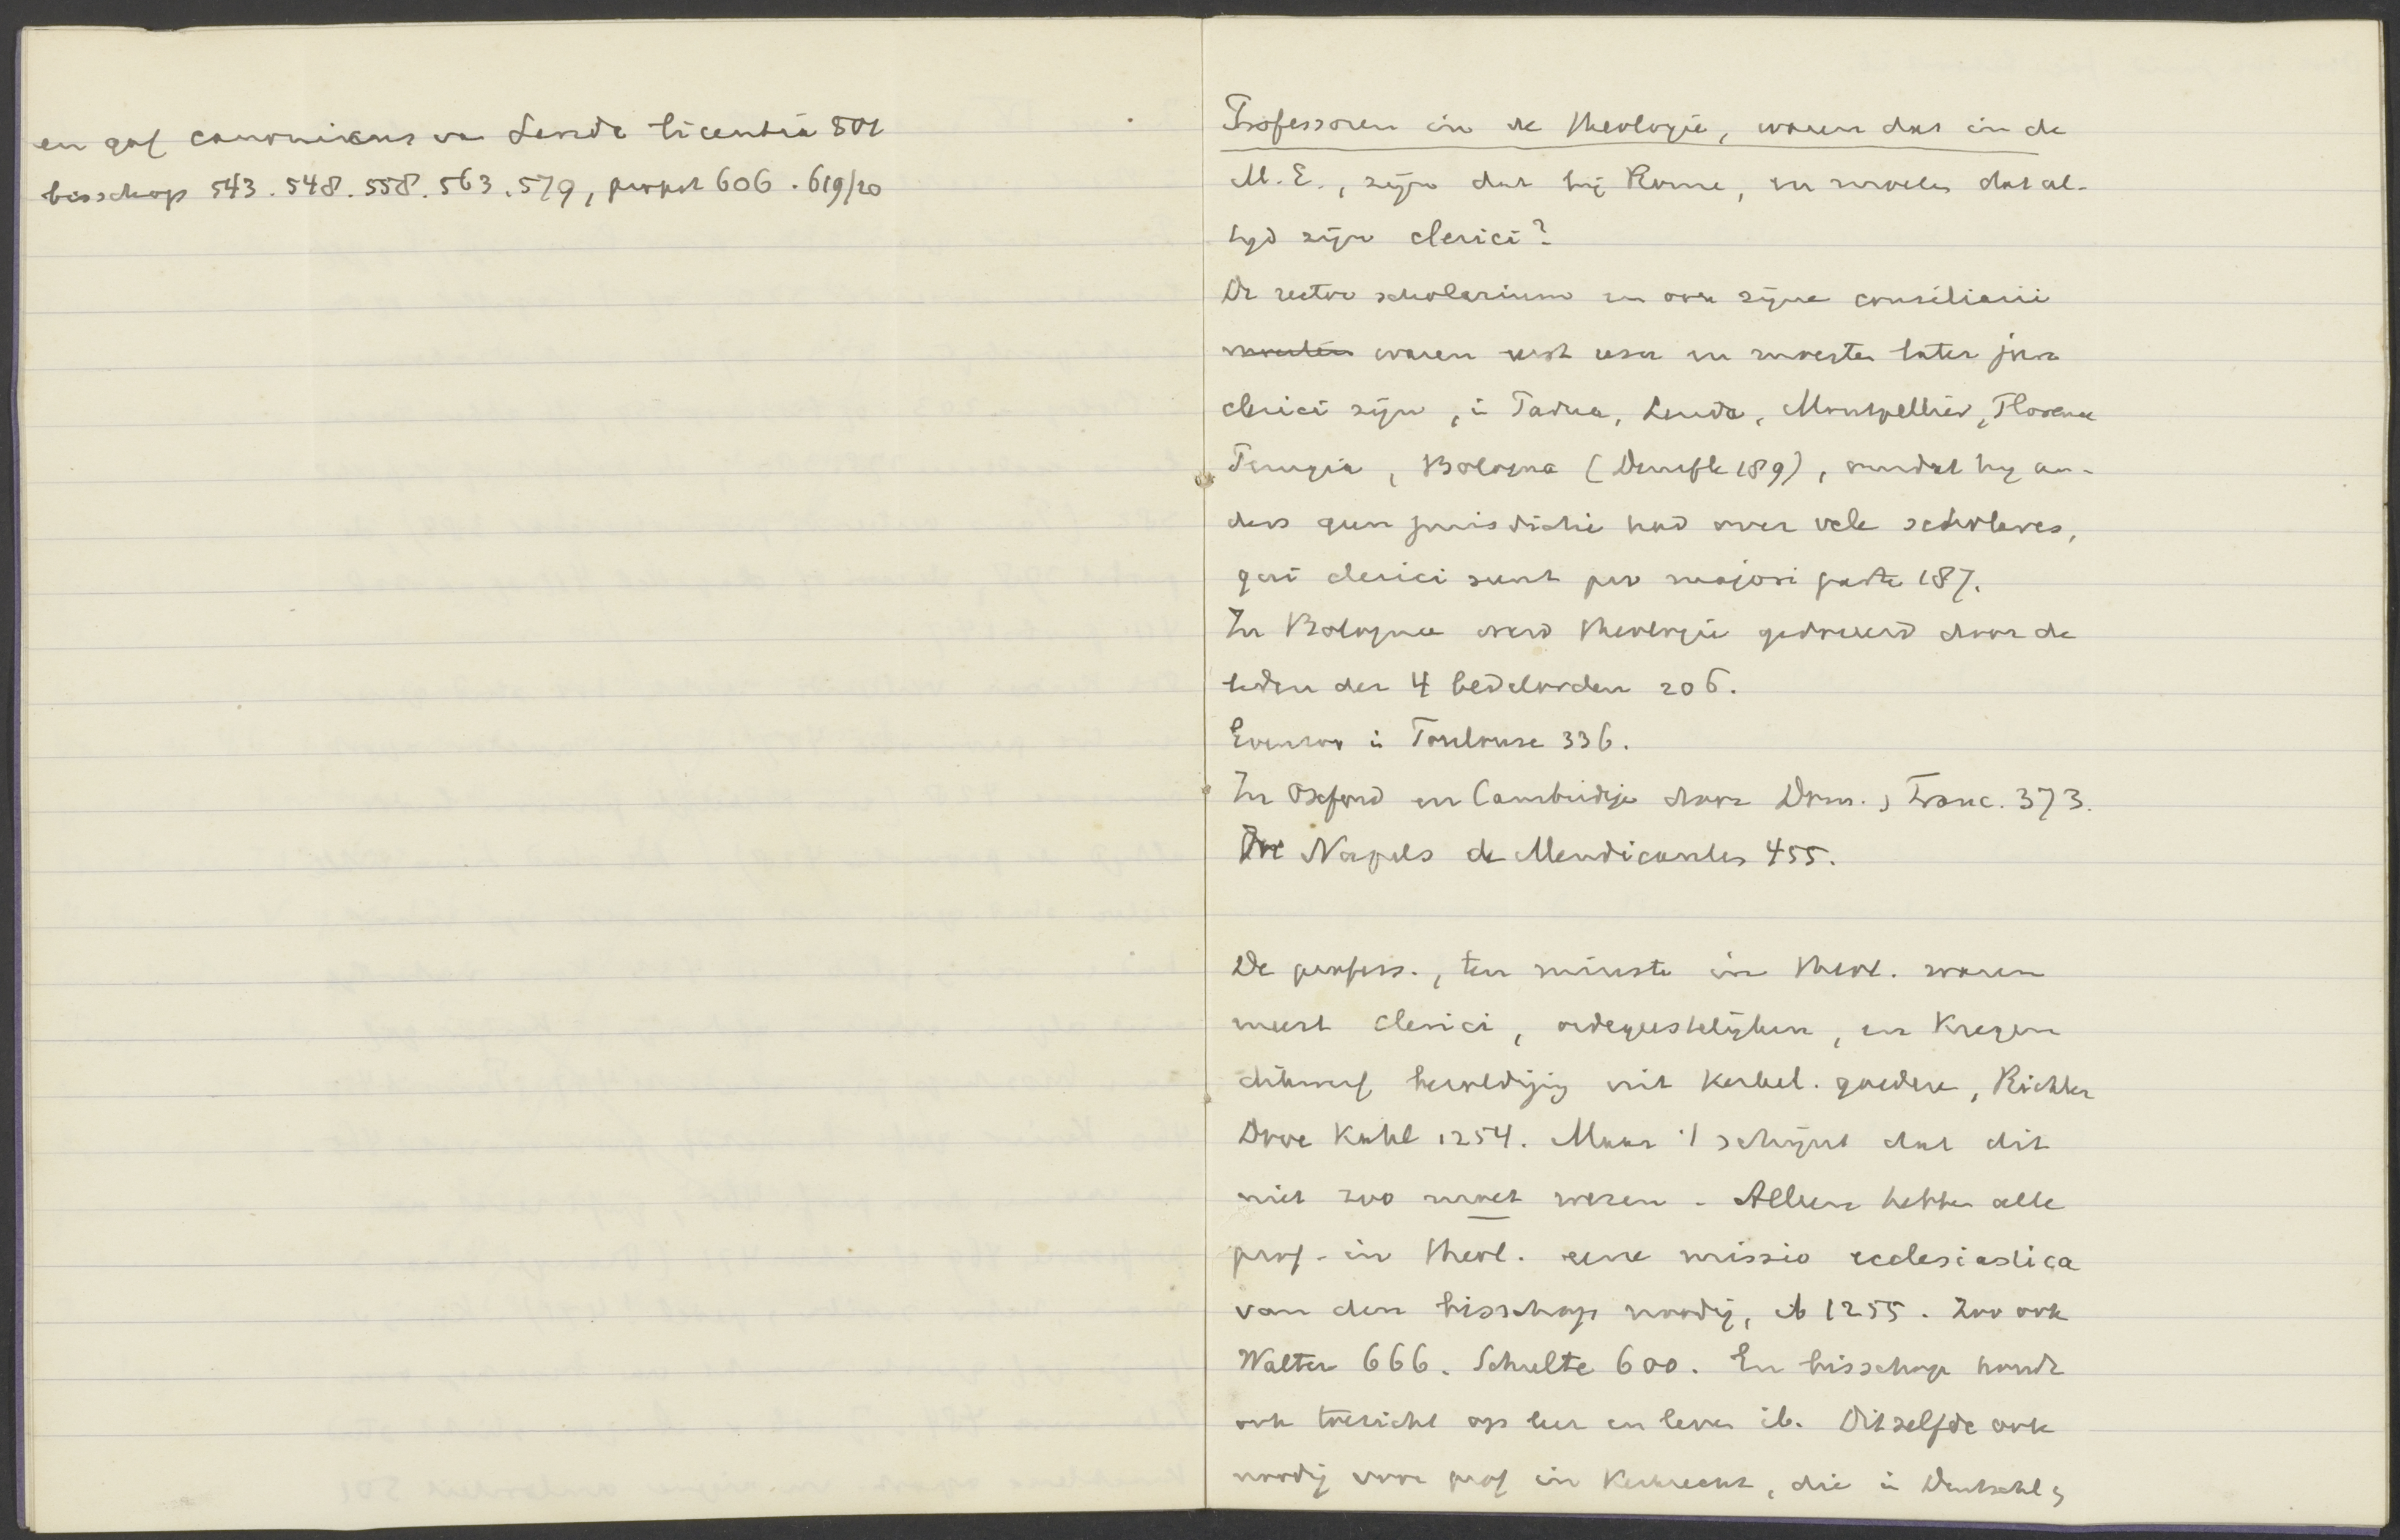 en gaf canonikus van Lerida licentia 501
bisschop 543. 548. 558. 563. 579, proost 606. 619/20
Professoren in de theologie, waren dat in de
M. E., zijn dat bij Rome, en moeten dat al-
tyd zijn clerici?
De rector scholarium en ook zijne consiliarii
moesten waren eerst leek en moesten later
clerici zijn, in Padua, Lerida, Montpellier, Florence
Perugia, Bologna (Denifle 189), omdat hy an-
ders geen jurisdictie had over vele scholares,
qui clerici sunt pro majori parte 187.
In Bologna werd theologie gedoceerd door de
leden der 4 bedelorden 206.
Evenzoo in Toulouse 336.
In Oxford en Cambridge door Dom., Franc. 373.
In Napels de Mendicantes 455.
De profess., ten minste in theol. waren
meest clerici, ordegeestelijken, en kregen
dikwerf bezoldiging uit kerkel. goederen, Richter
Dove Kahl 1254. Maar 't schijnt dat dit
niet zoo moet wezen. Alleen hebben alle
prof. in theol. eene missio ecclesiastica
van den bisschop noodig, ib 1255. Zoo ook
Walter 666. Schulte 600. En bisschop houdt
ook toezicht op leer en leven ib. Ditzelfde ook
noodig voor prof in Kerkrecht, die in Duitschl